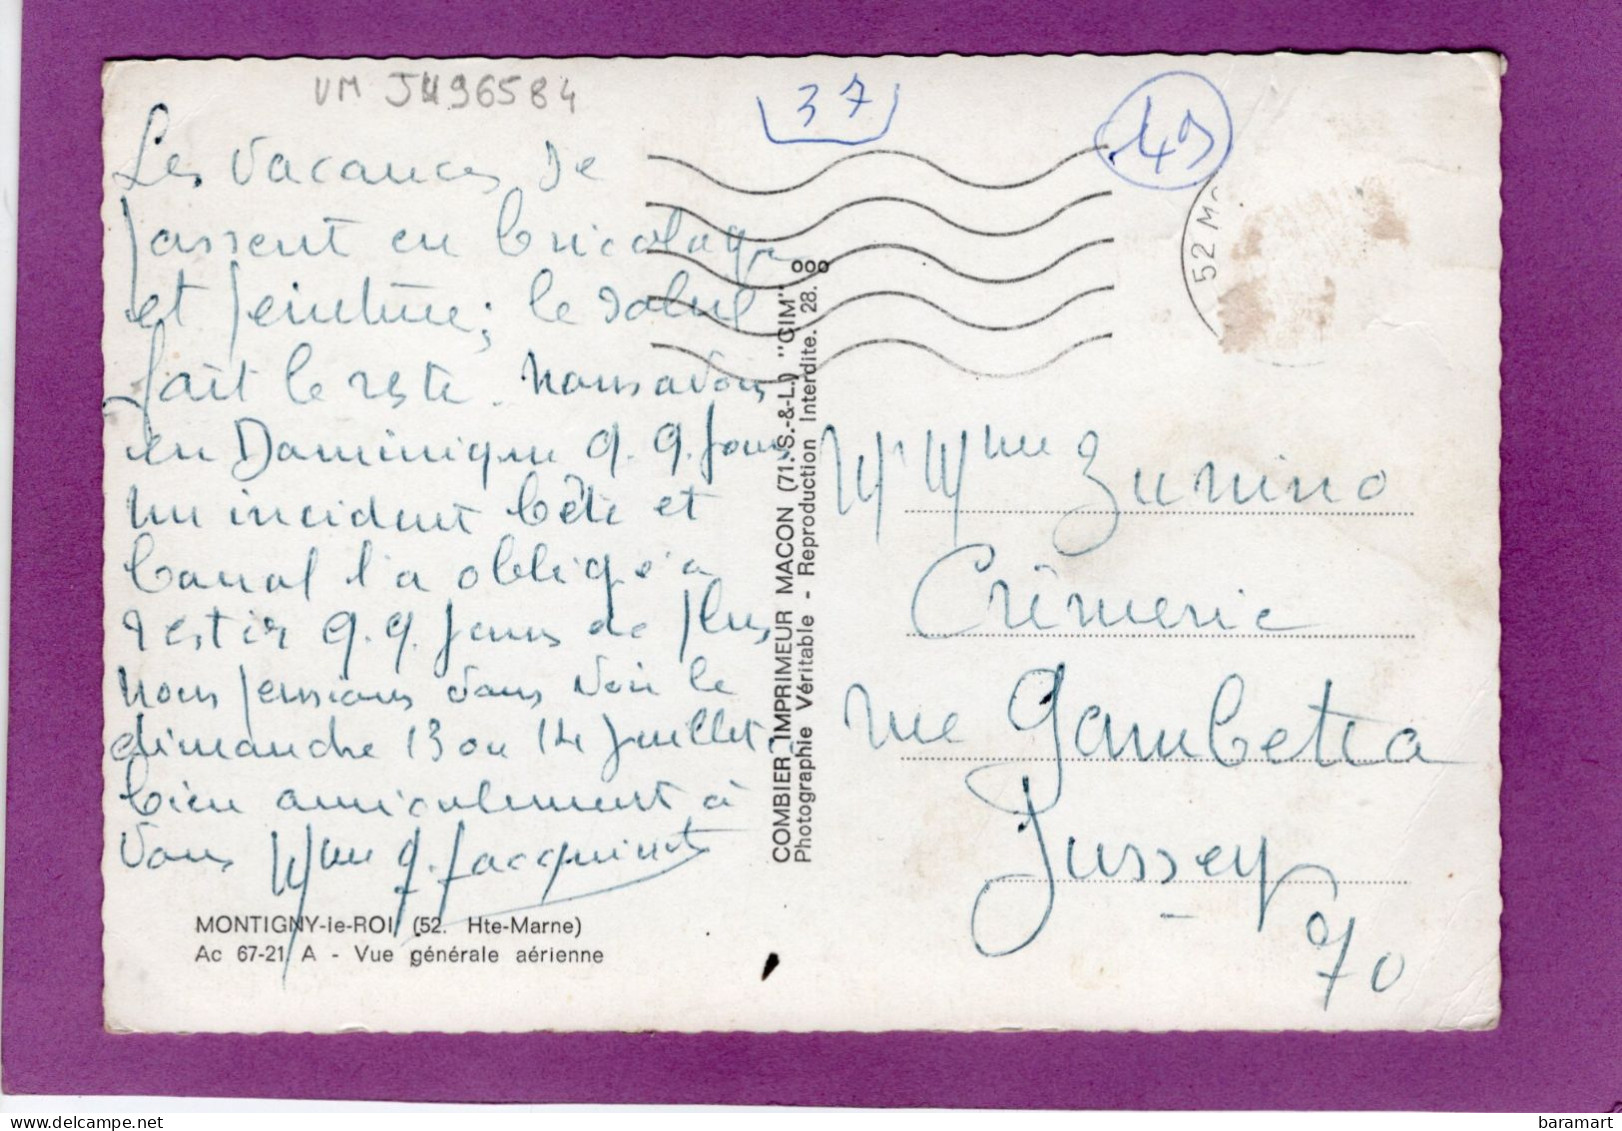 VM J496584
37
49
52 M
Les vacances se
passent en bricolage
et peinture; le soleil
fait le reste. Nous avons
eu Dominique q.q. jours
un incident bête et
banal l'a obligé à
rester q.q. jours de plus
nous pensions vous voir le
dimanche 13 ou 14 Juillet.
bien amicalement à
vous Mme J. Jacquinot
MONTIGNY-le-ROI (52. Hte-Marne)
Ac 67-21 A - Vue générale aérienne
COMBIER IMPRIMEUR MACON (71.S.-&-L.) "CIM" ooo
Photographie Véritable - Reproduction Interdite. 28.
Mr Mme Zunino
Crêmerie
rue Gambetta
Jussey
70
baramart